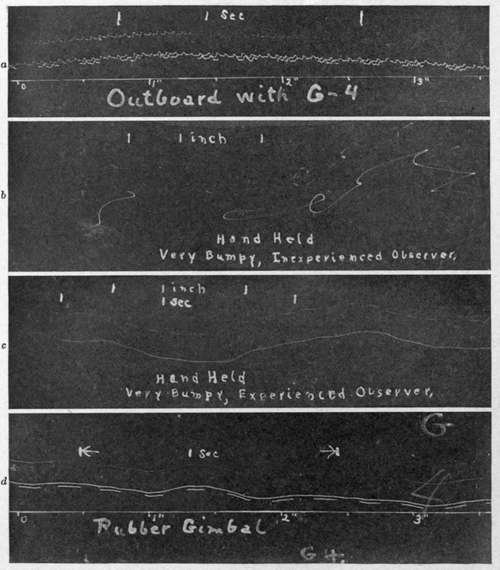 1 Sec
a
0 1" 2" 3"
Outboard with G-4
b
1 inch
Hand Held
Very Bumpy, Inexperienced Observer,
c
1 inch
1 sec
Hand Held
Very Bumpy, Experienced Observer,
G-
4
d
1 Sec
0 1" 2" 3"
Rubber Gimbal
G4.